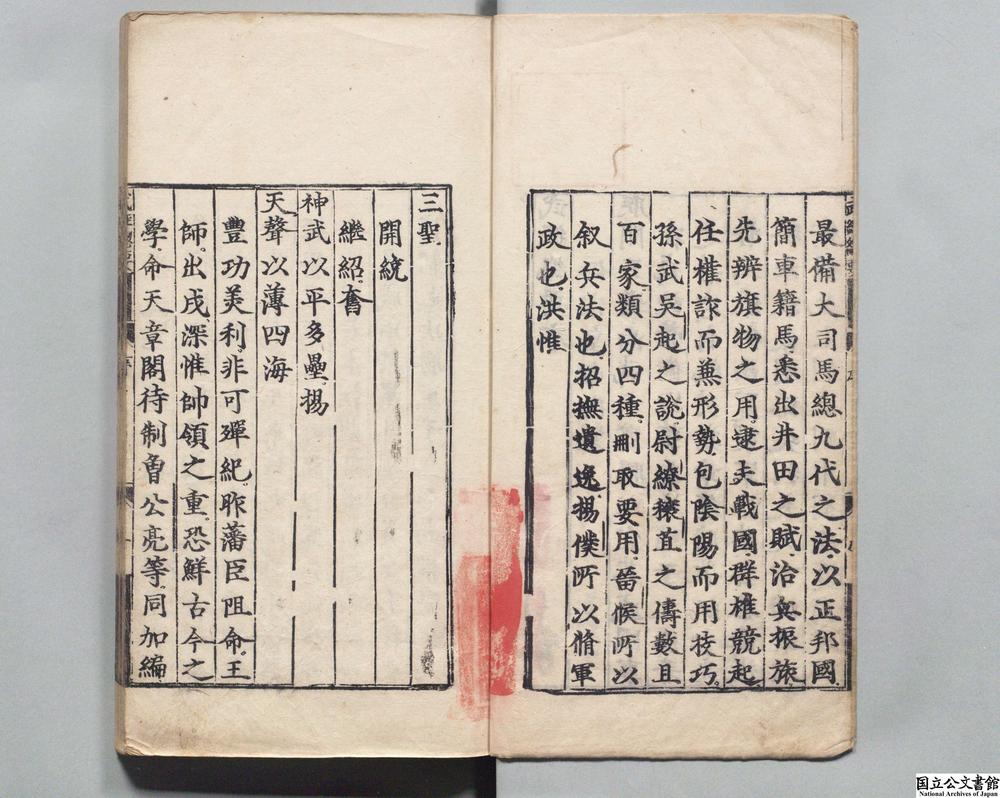 最備大司馬總九代之法以正邦國
簡車籍馬悉出井田之賦治兵振旅
先辨旗物之用逮夫戰國群雄競起
任權詐而兼形勢包陰陽而用技巧
孫武吳起之說尉繚穰苴之儔數且
百家類分四種刪取要用畱候所以
叙兵法也招撫遺逸楊僕所以脩軍
政也洪惟
三聖
開統
繼紹奮
神武以平多壘揚
天聲以薄四海
豐功美利非可殫紀昨藩臣阻命王
師出戍深惟帥領之重恐鮮古今之
學命天章閣待制曾公亮等同加編
国立公文書館
National Archives of Japan